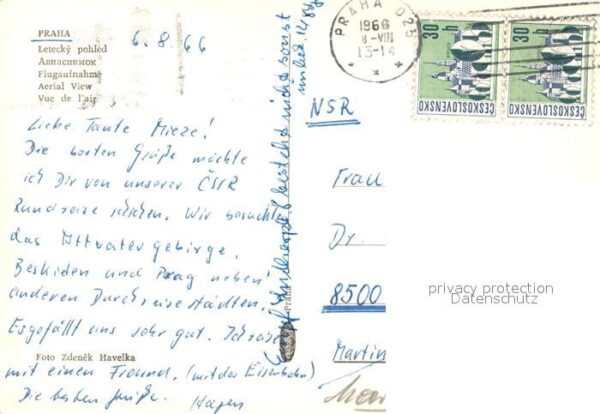 PRAHA
Letecký pohled
Авиаснимок
Flugaufnahme
Aerial View
Vue de l'air
6.8.66
Liebe Tante Mieze!
Die besten Grüße möchte
ich Dir von unserer ČSSR
Rundreise schicken. Wir besuchten
das Altvatergebirge,
Beskiden und Prag neben
anderen Durchreisestädten.
Es gefällt uns sehr gut. Ich reise
Foto Zdeněk Havelka
mit einem Freund. (mit der Eisenbahn)
Die besten Grüße
Hagen
besteht nicht sonst
PRAHA 025
1966
8-VIII
13-14
30 h
ČESKOSLOVENSKO
30 h
ČESKOSLOVENSKO
NSR
Frau
Dr.
8500
Martin
privacy protection
Datenschutz